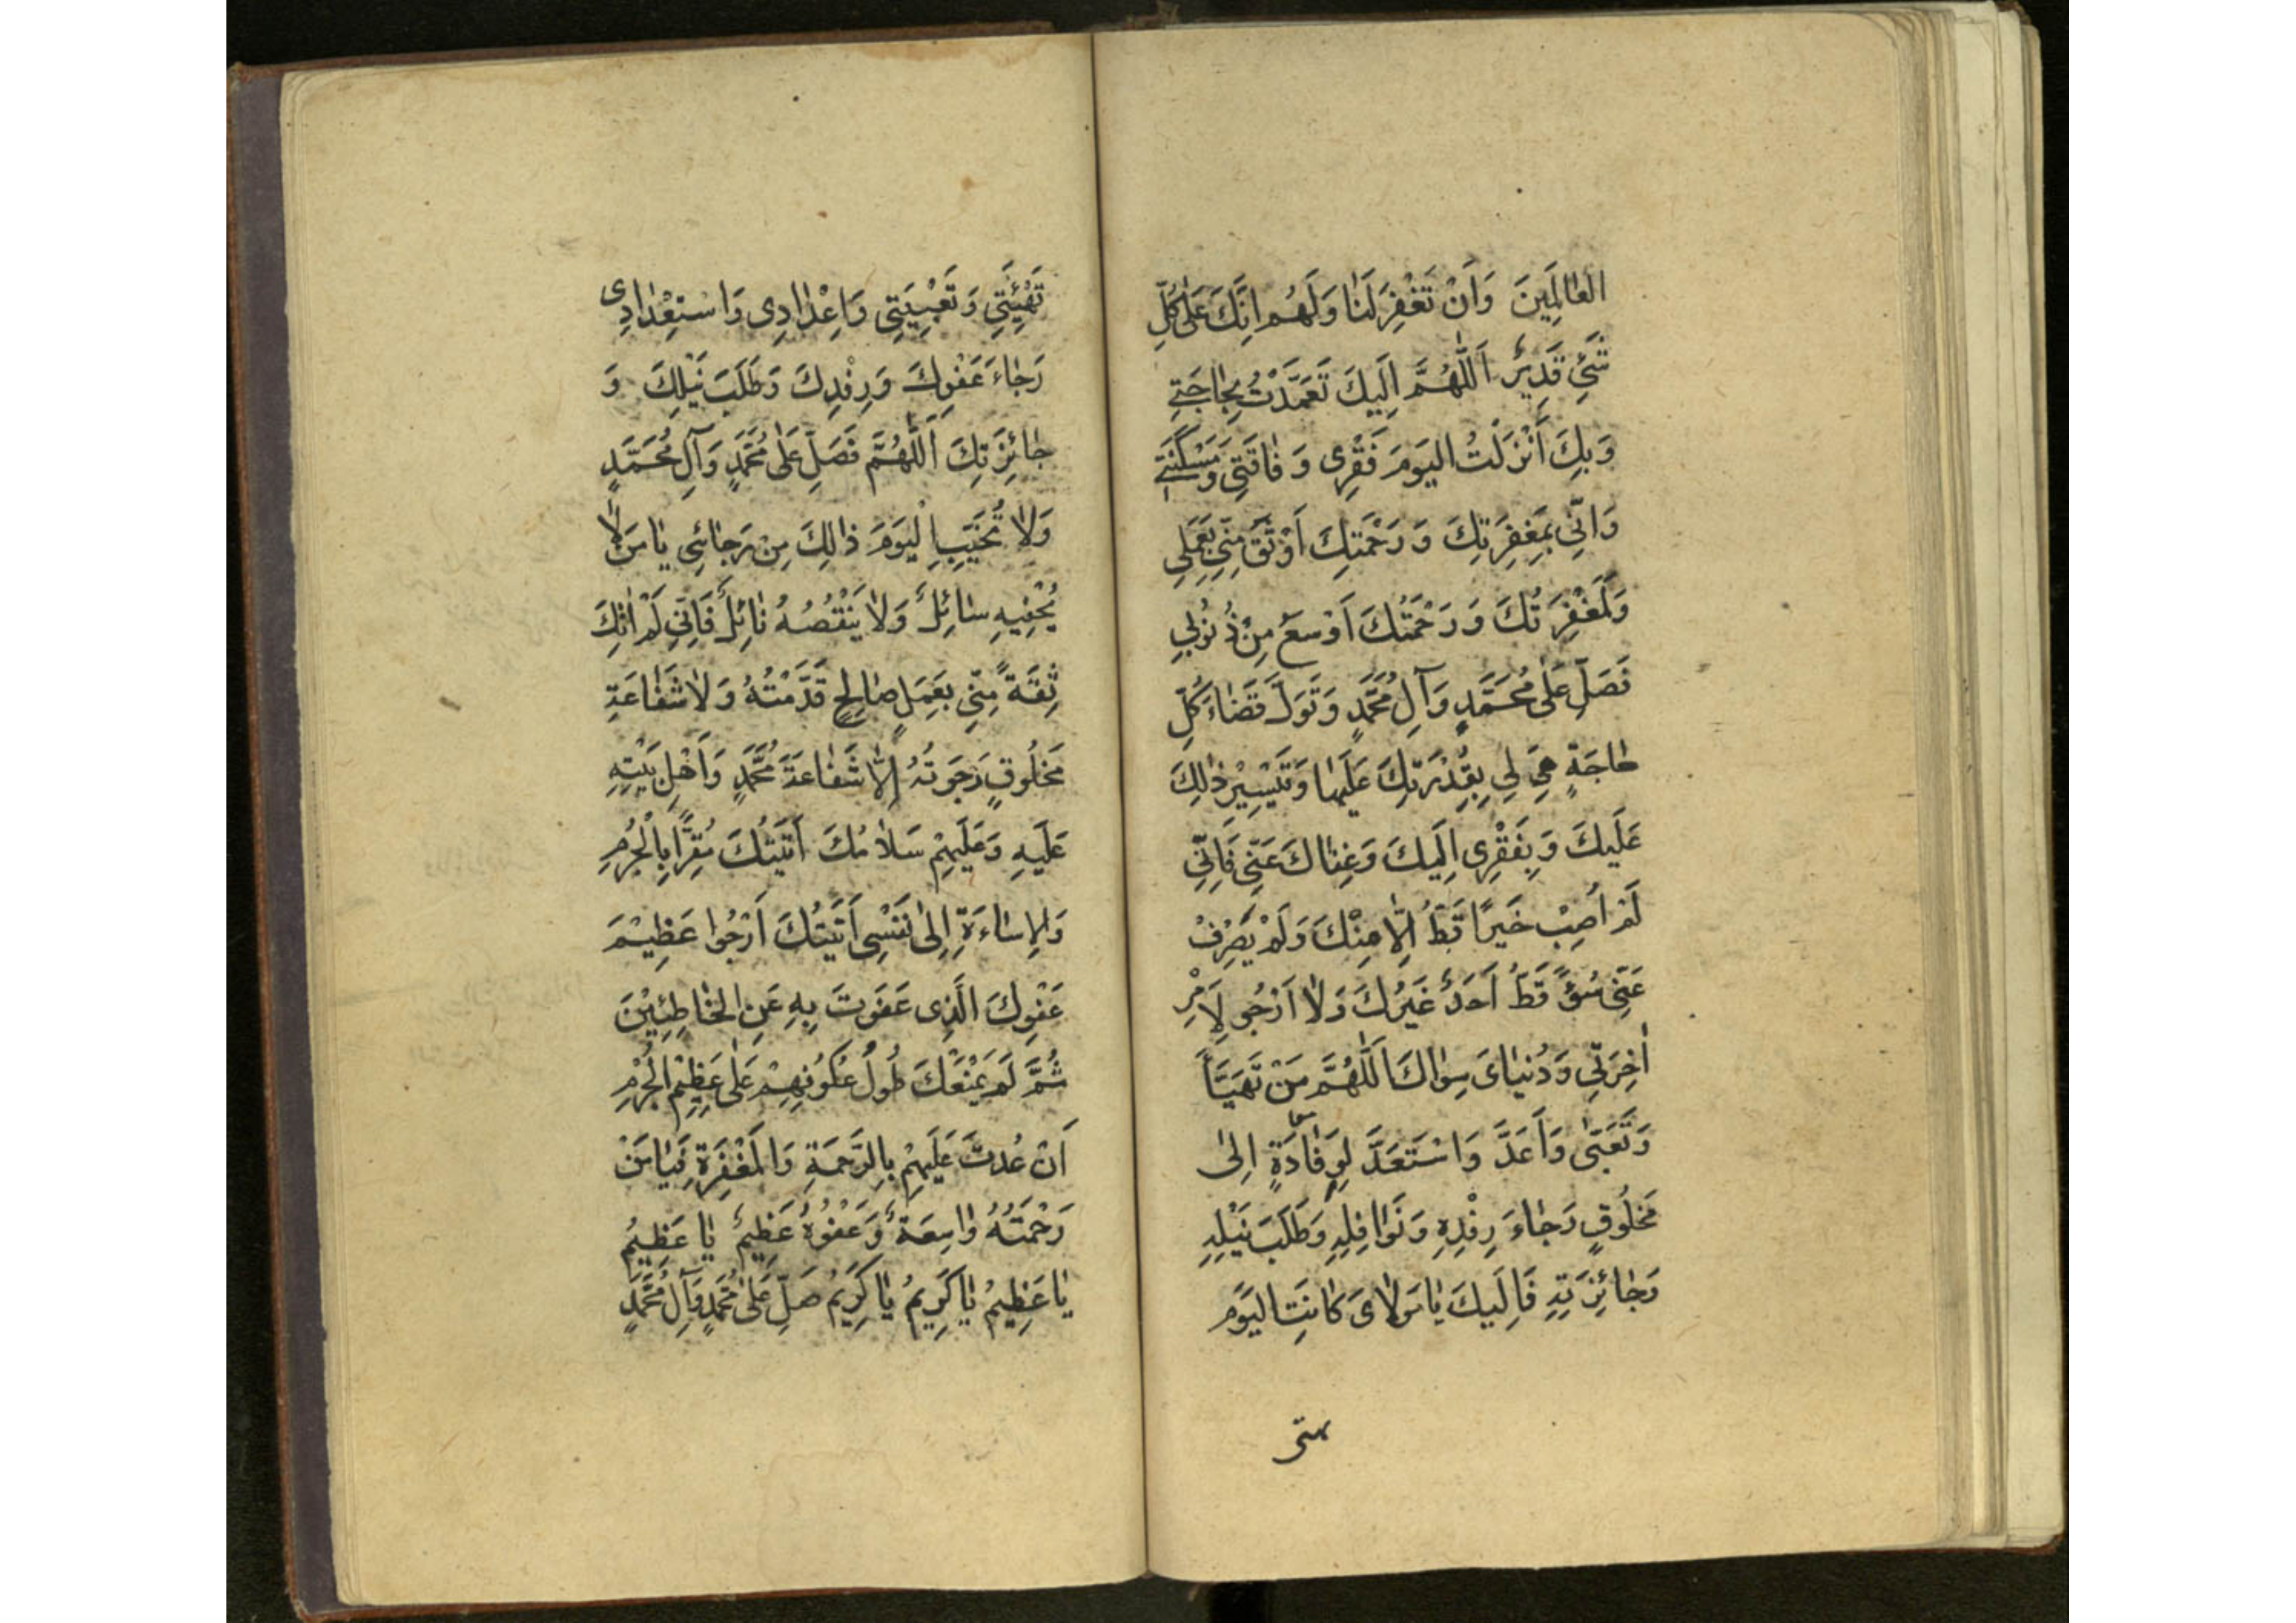 العٰالَمِينَ وَاَنْ تَغْفِرَ لَنٰا وَلَهُم اِنَّكَ عَلىٰ كُلِّ
شَئٍ قَدِيرٌ اَللّٰهُمَّ اِلَيكَ تَعَمَّدْتُ بِحٰاجَتِي
وَبِكَ أَنْزَلْتُ اليَومَ فَقْرِى وَ فٰاقَتِى وَمَسْكَنَتِي
وَانِّى بِمَغِفِرَتِكَ وَ رَحْمَتِكَ اَوْثَقُ مِنِّى بِعَمَلِي
وَلَمَغْفِرَتُكَ وَ رَحْمَتُكَ اَوْسَعُ مِنْ ذُنُوبِي
فَصَلِّ عَلىٰ مُحَمَّدٍ وَآلِ مُحَمَّدٍ وَتَوَلَّ قَضٰاءَ كُلِّ
حٰاجَةٍ هِيَ لِي بِقُدْرَتِكَ عَلَيهٰا وَتَيْسِيْرِ ذٰلِكَ
عَلَيكَ وَ بِفَقْرِى اِلَيكَ وَغِنٰاكَ عَنِّى فَاِنِّى
لَمْ اُصِبْ خَيرًا قَطُّ اِلّٰا مِنْكَ وَلَمْ يَصْرِفْ
عَنِّى سُوءً قَطُّ اَحَدٌ غَيرُكَ وَلٰا اَرْجُو لِاَمْرِ
اٰخِرَتِي وَدُنيٰاىَ سِوٰاكَ اَللّٰهُمَّ مَنْ تَهَيَّأَ
وَتَعَبّىٰ وَاَعَدَّ وَاسْتَعَدَّ لِوِفٰادَةٍ اِلىٰ
مَخلُوقٍ رَجٰاءَ رِفْدِهِ وَنَوٰافِلِهِ وَطَلَبَ نَيْلِهِ
وَجٰائِزَتِهِ فَاِلَيكَ يٰا مَولٰاىَ كٰانَتِ اليَوَم
تهئتى
تَهْيِئَتِى وَ تَعْبِيَتِى وَاِعْدٰادِى وَاسْتِعْدٰادِى
رَجٰاءَ عَفْوِكَ وَرِفْدِكَ وَطَلَبَ نَيْلِكَ وَ
جٰائِزَتِكَ اَللّٰهُمَّ فَصَلِّ عَلىٰ مُحَمَّدٍ وَآلِ مُحَمَّدٍ
وَلٰا تُخَيِّبِ الْيَومَ ذٰلِكَ مِنْ رَجٰائِى يٰا مَنْ لٰا
يُحْفِيهِ سٰائِلٌ وَلٰا يَنْقُصُهُ نٰائِلٌ فَاِنِّى لَمْ اٰتِكَ
ثِقَةً مِنِّى بِعَمَلٍ صٰالِحٍ قَدَّمْتُهُ وَ لٰا شَفٰاعَةِ
مَخلُوقٍ رَجَوتُهُ اِلّٰا شَفٰاعَةَ مُحَمَّدٍ وَأَهْلِ بَيْتِهِ
عَلَيهِ وَعَلَيهِمْ سَلٰامُكَ اَتَيْتُكَ مُقِرًّا بِالْجُرْمِ
وَالِاسٰاءَةِ اِلىٰ نَفْسِى اَتَيْتُكَ اَرْجُوا عَظِيْمَ
عَفْوِكَ الَّذِى عَفَوتَ بِهِ عَنِ الخٰاطِئِيْنَ
ثُمَّ لَمْ يَمْنَعْكَ طُولُ عُكُوفِهِمْ عَلىٰ عَظِيْمِ الْجُرْمِ
اَنْ عُدتَّ عَلَيهِمْ بِالرَّحْمَةِ وَالمَغْفِرَةِ فَيٰا مَنْ
رَحْمَتُهُ وٰاسِعَةٌ وَعَفْوُهُ عَظِيمٌ يٰا عَظِيمُ
يٰا عَظِيمُ يٰا كَرِيمُ يٰا كَرِيمُ صَلِّ عَلىٰ مُحَمَّدٍ وَآلِ مُحَمَّدٍ